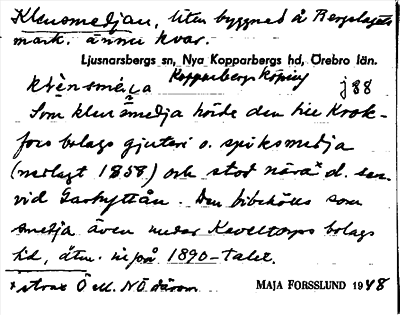 Klensmedjan, liten byggnad å Bergslagets
mark. ännu kvar.
Ljusnarsbergs sn, Nya Kopparbergs hd, Örebro län.
Kopparbergs köping
j 88
Som klensmedja hörde den till Krok-
fors bolags gjuteri o. spiksmedja
(nedlagt 1858) och stod nära* d. sen.
vid Garhyttån. Den bibehölls som
smedja även under Kaveltorps bolags
tid, åtm. inpå 1890-talet.
* strax Ö ell. NÖ därom
MAJA FORSSLUND 1948